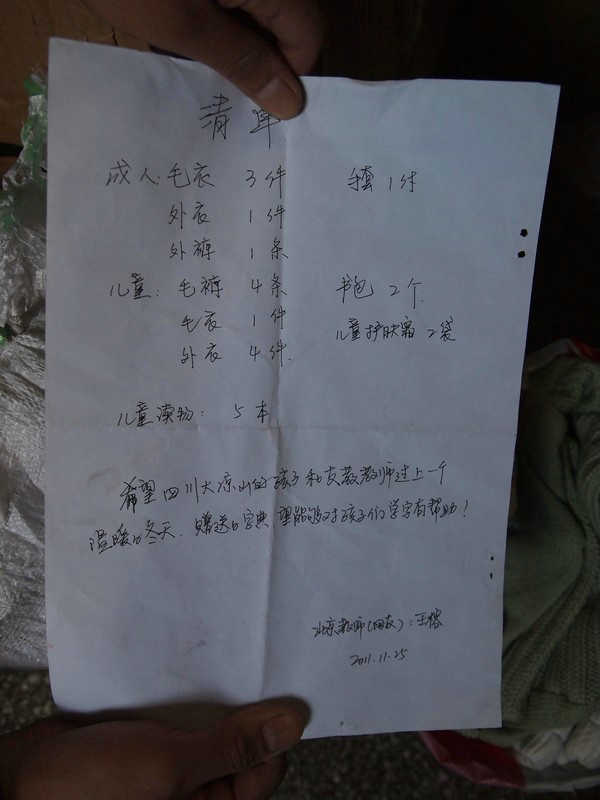 清单
成人: 毛衣 3件 手套 1件
外衣 1件
外裤 1条
儿童: 毛裤 4条 书包 2个
毛衣 1件 儿童护肤霜 2袋
外衣 4件
儿童读物: 5本
希望四川大凉山的孩子和支教教师过上一个
温暖的冬天. 赠送的字典望能够对孩子们学字有帮助!
北京教师(网友): 王
2011.11.25